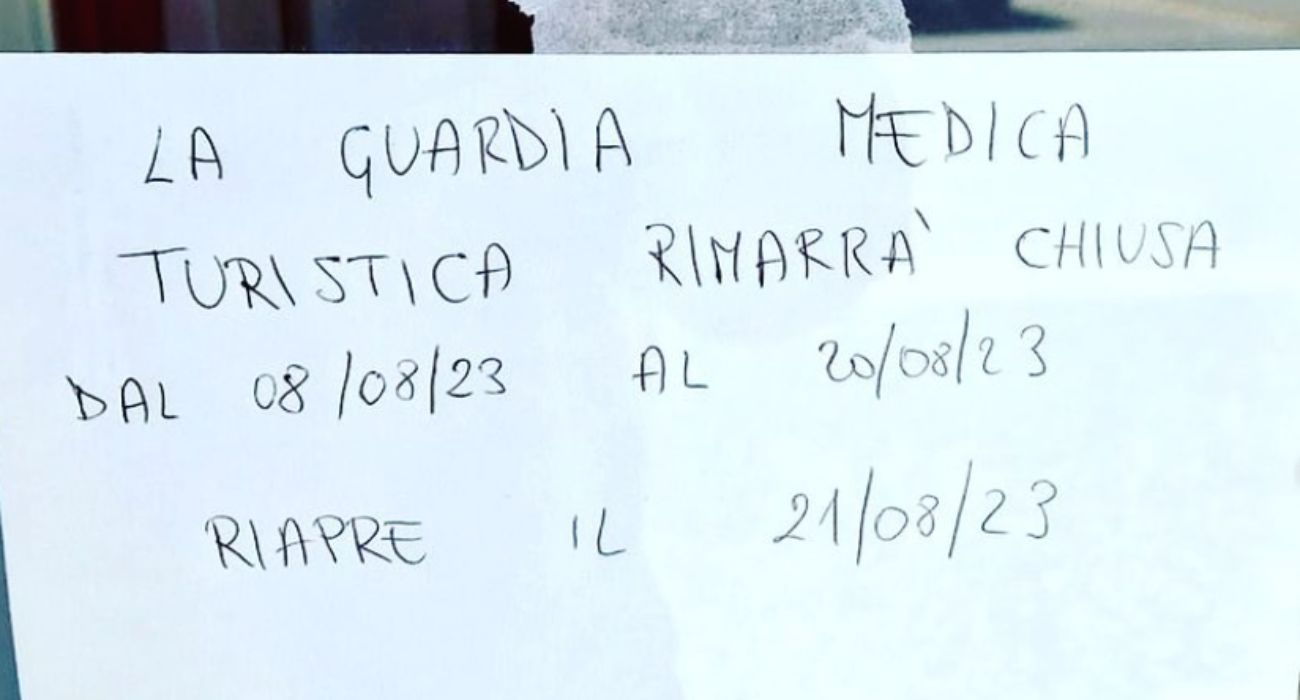 LA GUARDIA MEDICA
TURISTICA RIMARRA' CHIUSA
DAL 08/08/23 AL 20/08/23
RIAPRE IL 21/08/23